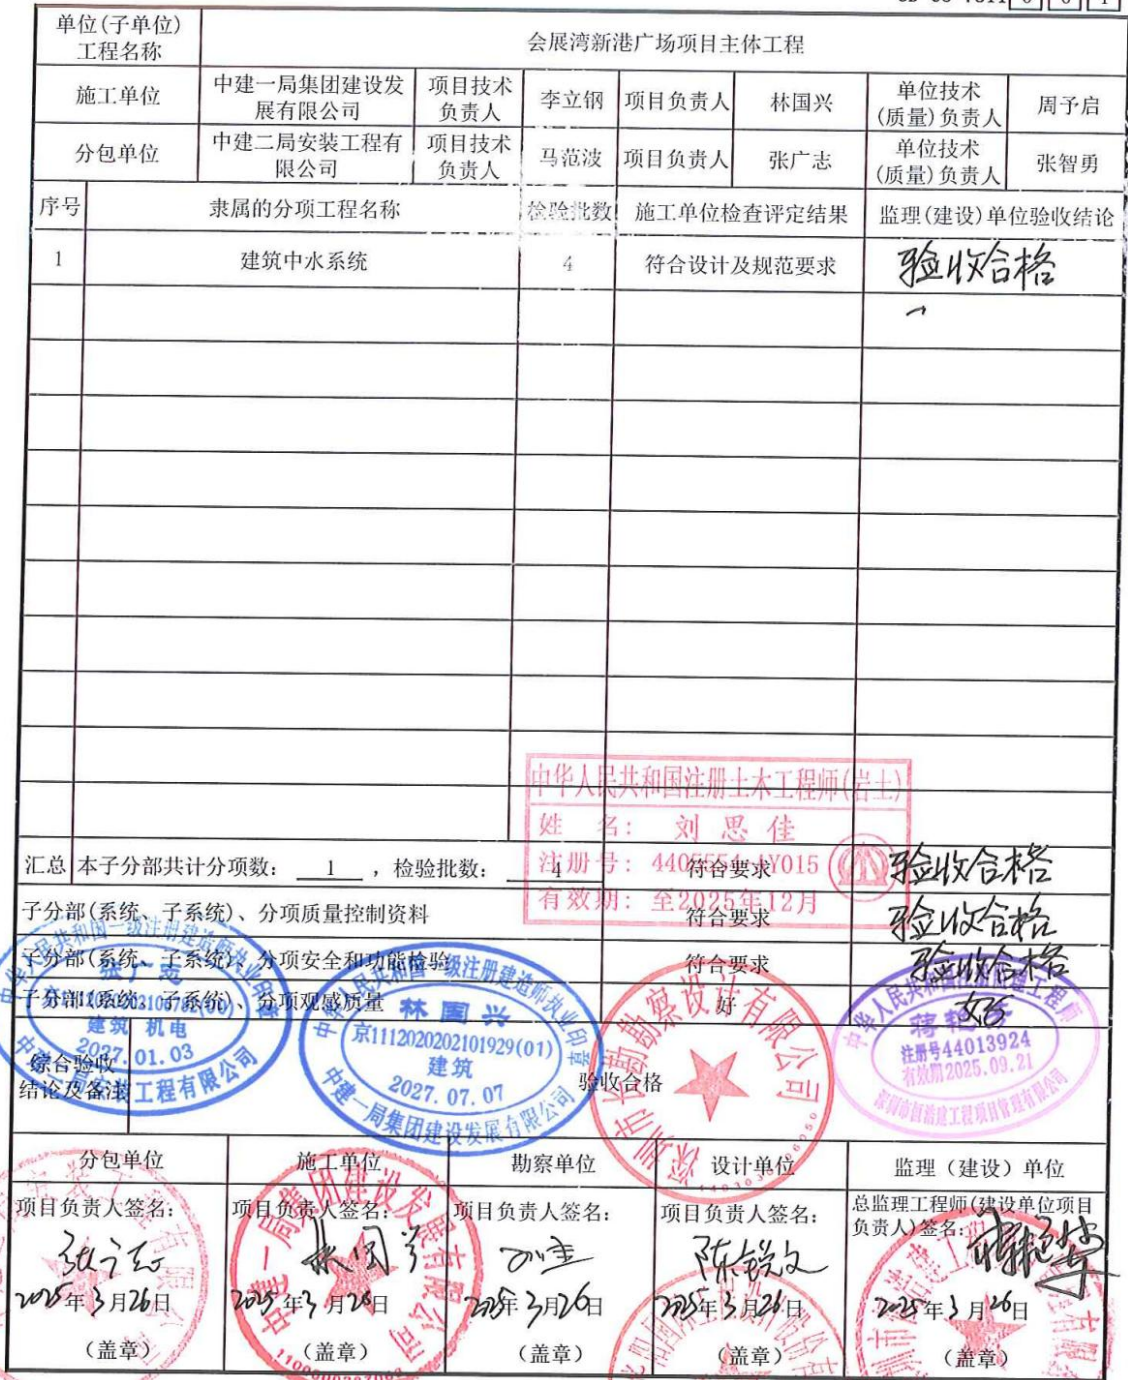 单位(子单位)
工程名称
会展湾新港广场项目主体工程
施工单位
中建一局集团建设发
展有限公司
项目技术
负责人
李立钢
项目负责人
林国兴
单位技术
(质量)负责人
周予启
分包单位
中建二局安装工程有
限公司
项目技术
负责人
马范波
项目负责人
张广志
单位技术
(质量)负责人
张智勇
序号
隶属的分项工程名称
检验批数
施工单位检查评定结果
监理(建设)单位验收结论
1
建筑中水系统
4
符合设计及规范要求
验收合格
中华人民共和国注册土木工程师(岩土)
姓 名: 刘思佳
注册号:
有效期: 至2025年12月
汇总
本子分部共计分项数: 1 ,检验批数: 4
符合要求
验收合格
子分部(系统、子系统)、分项质量控制资料
符合要求
验收合格
子分部(系统、子系统)、分项安全和功能检验
符合要求
验收合格
子分部(系统、子系统)、分项观感质量
好
好
综合验收
结论及备注
验收合格
张广志
建筑 机电
2027.01.03
中华人民共和国一级注册建造师执业印章
林国兴
京1112020202101929(01)
建筑
2027.07.07
中建一局集团建设发展有限公司
蒋艳芳
注册号44013924
有效期2025.09.21
分包单位
施工单位
勘察单位
设计单位
监理(建设)单位
项目负责人签名:
张广志
2025年3月26日
(盖章)
项目负责人签名:
林国兴
2025年3月26日
(盖章)
项目负责人签名:
2025年3月26日
(盖章)
项目负责人签名:
2025年3月26日
(盖章)
总监理工程师(建设单位项目
负责人)签名:
2025年3月26日
(盖章)